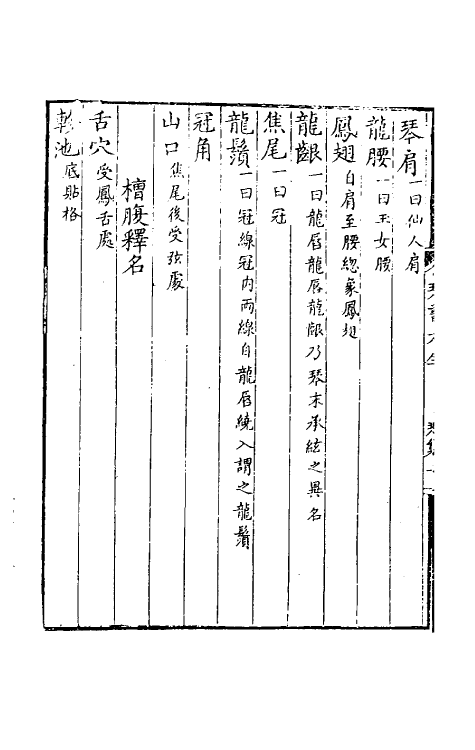 琴肩一曰仙人肩
龍腰一曰玉女腰
鳳翅自肩至腰緫象鳳翅
龍齦一曰龍唇龍唇龍齦乃琴末承絃之異名
焦尾一曰冠
龍鬚一曰冠線冠内兩線自龍唇繞入謂之龍鬚
冠角
山口焦尾後受弦處
槽腹釋名
舌穴受鳳舌處
池底貼格